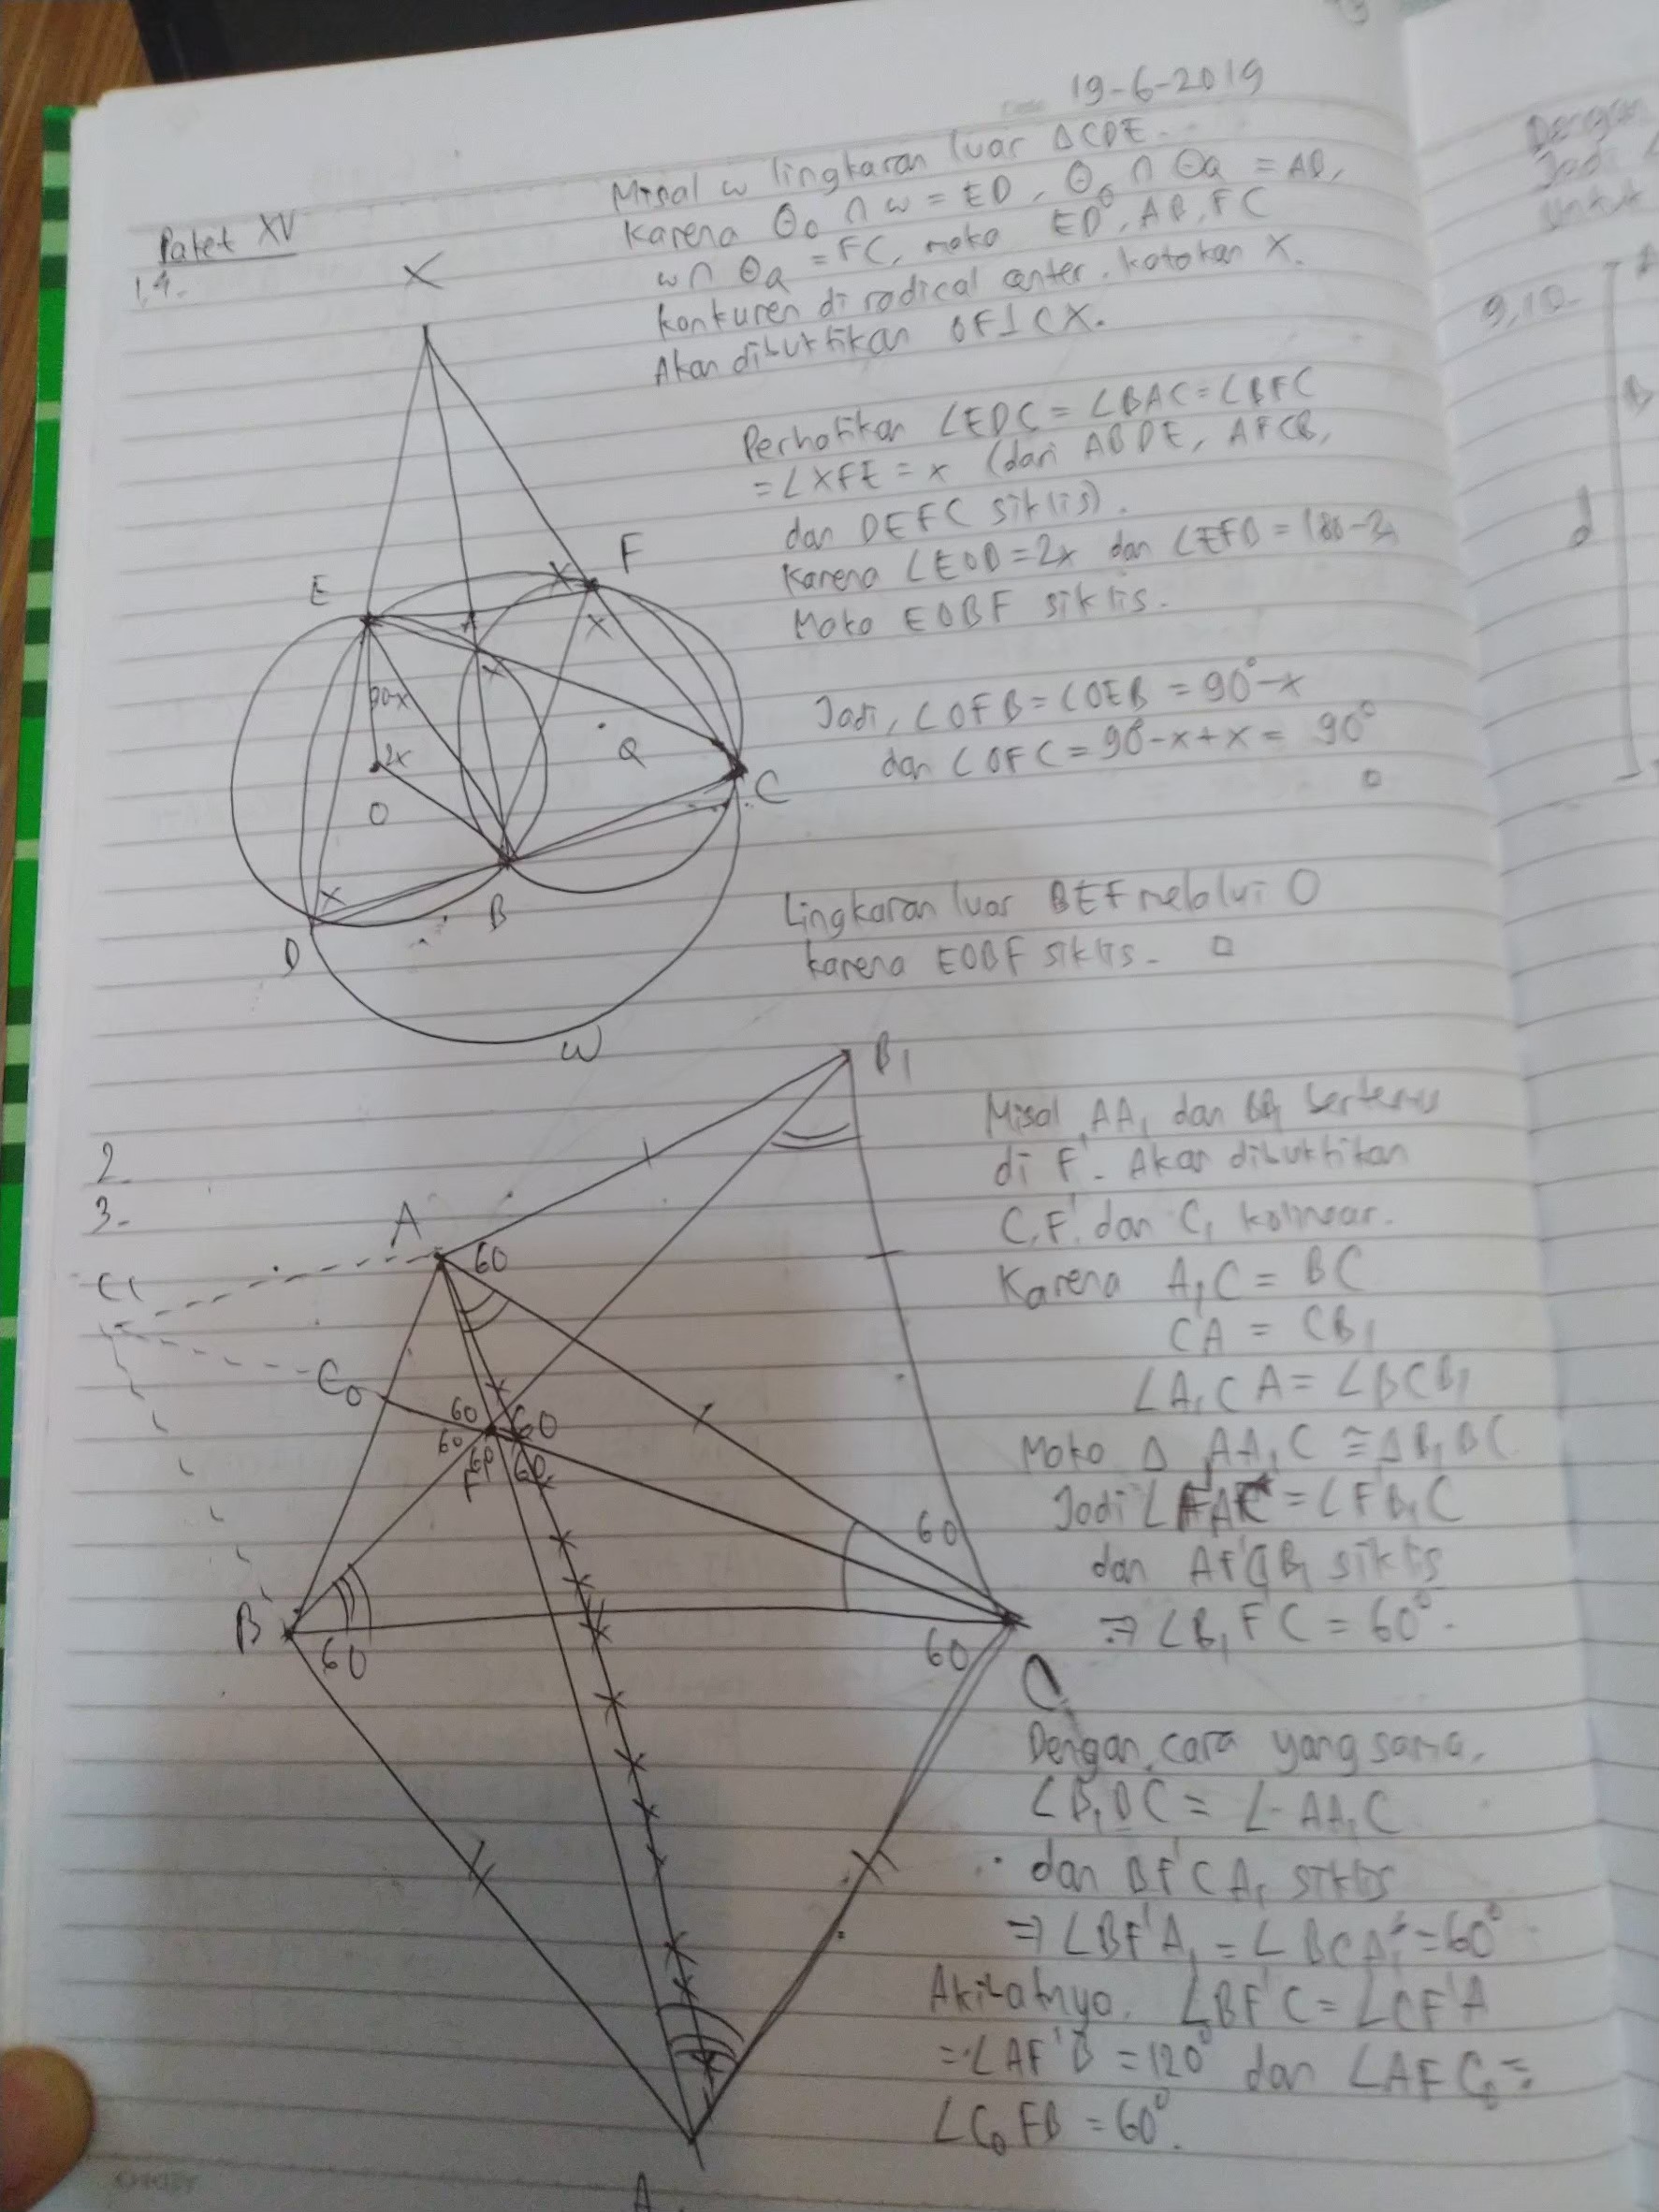 19-6-2019
Paket XV
1,4.
Misal w lingkaran luar ΔCDE.
Karena Θo ∩ w = ED, Θo ∩ ΘQ = AB,
w ∩ ΘQ = FC, maka ED, AB, FC
konkuren di radical center. katakan X.
Akan dibuktikan OF⊥CX.
Perhatikan ∠EDC = ∠BAC = ∠BFC
= ∠XFE = x (dari ABDE, AFCB,
dan DEFC siklis).
Karena ∠EOB=2x dan ∠EFB = 180-2x
Maka EOBF siklis.
Jadi, ∠OFB=∠OEB = 90°-x
dan ∠OFC = 90-x+x = 90°
□
Lingkaran luar BEF melalui O
karena EOBF siklis. □
X
E
F
A
x
x
x
90-x
2x
O
Q
C
x
D
B
W
2.
3.
Misal AA₁ dan BB₁ bertemu
di F'. Akan dibuktikan
C, F' dan C₁ kolinear.
Karena A₁C = BC
CA = CB₁
∠A₁CA = ∠BCB₁
Maka Δ AA₁C ≅ ΔB₁BC
Jadi ∠ = ∠F'B₁C
dan AF'CB₁ siklis
⇒ ∠B₁F'C = 60°.
Dengan cara yang sama,
∠B₁BC = ∠AA₁C
dan BF'CA₁ siklis
⇒ ∠BF'A₁ = ∠BCA₁ = 60°
Akibatnya, ∠BF'C = ∠CF'A
= ∠AF'B = 120° dan ∠AFC₀ =
∠C₀FB = 60°.
B₁
A
60
C₁
C₀
60
60
60
60
60
F
60
B
60
60
C
A₁
9,10.